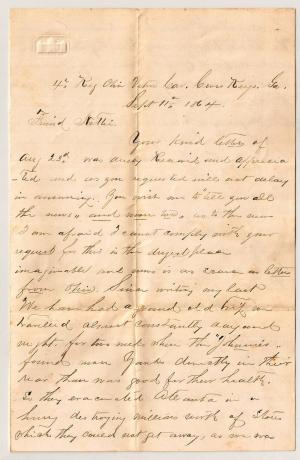 4th Reg Ohio Vetrn Cav. Cross Keys. Ga.
Sept 11th 1864.
Friend Nettie
Your kind letter of
Aug 23d was duly Received and apprecia
-ted and as you requested will not delay
in answering. You wish me to tell you all
the news, and more too, as to the news
I am afraid I cannot comply with your
request for this is the dryest place
imaginable and news is as scarce as letter
from Ohio. Since writing my last
We have had a grand old time
almost constantly day and
night for two weeks when the Johnnies
found more Yanks directly in their
rear than was good for their health.
So they evacuated Atlanta in a
hurry destroying millions worth of Stores
which they could not get away, as we was